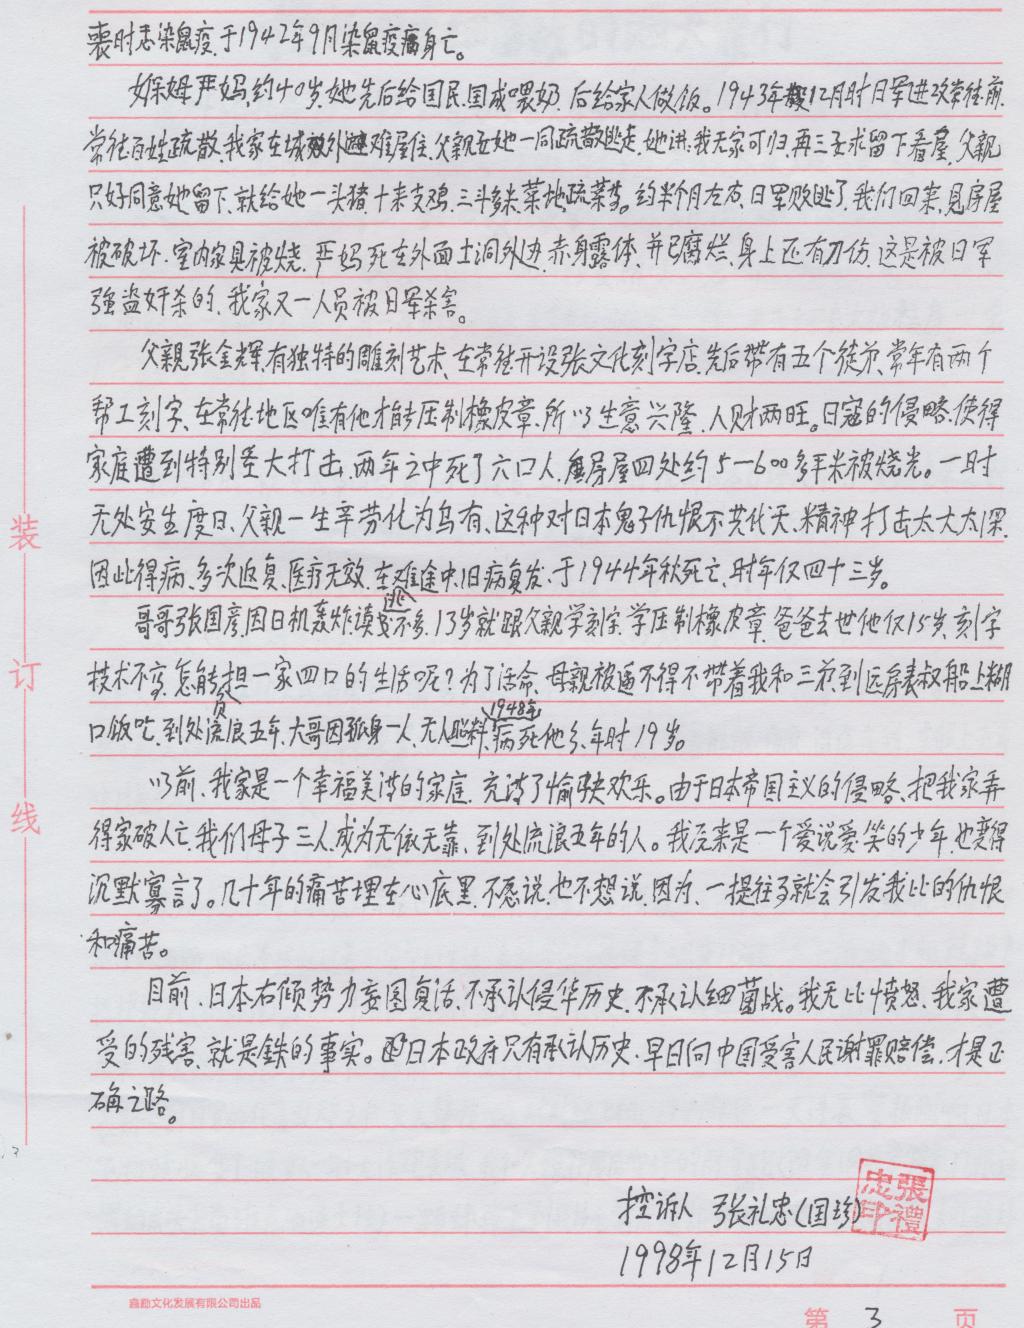 丧时志染鼠疫,于1942年9月染鼠疫病身亡。
女保姆严妈,约40岁,她先后给国民、国成喂奶,后给家人做饭。1943年12月时日军进攻常德前,
常德百姓疏散,我家在城外避难屋住,父親要她一同疏散逃走,她讲:我无家可归,再三要求留下看屋,父親
只好同意她留下,就给她一头猪,十来支鸡,三斗多米,菜地疏菜等。约半个月左右,日军败逃了,我们回来,見房屋
被破坏,室内家具被烧,严妈死在外面土洞外边,赤身露体,并已腐烂,身上还有刀伤,这是被日军
强盗奸杀的,我家又一人员被日军杀害。
父親张金辉,有独特的雕刻艺术,在常德开设张文化刻字店,先后带有五个徒弟,常年有两个
帮工刻字,在常德地区唯有他才能压制橡皮章,所以生意兴隆,人财两旺。日寇的侵略,使得
家庭遭到特别重大打击,两年之中死了六口人,房屋四处约5—600多平米被烧光。一时
无处安生度日,父親一生辛劳化为乌有,这种对日本鬼子仇恨不共代天,精神打击太大太深,
因此得病,多次返复,医疗无效,在逃难途中,旧病复发,于1944年秋死亡,时年仅四十三岁。
哥哥张国彦,因日机轰炸读书不多,13岁就跟父親学刻字,学压制橡皮章,爸爸去世他仅15岁,刻字
技术不高,怎能负担一家四口的生活呢?为了活命,母親被逼不得不带着我和三弟到远房表叔船上糊
口饭吃,到处流浪五年,大哥因孤身一人,无人照料,1948年病死他乡,年时19岁。
以前,我家是一个幸福美满的家庭,充满了愉快欢乐。由于日本帝国主义的侵略,把我家弄
得家破人亡,我们母子三人成为无依无靠,到处流浪五年的人。我原来是一个爱说爱笑的少年,也变得
沉默寡言了。几十年的痛苦埋在心底里,不愿说,也不想说,因为,一提往事就会引发我的仇恨
和痛苦。
目前,日本右倾势力妄图复活,不承认侵华历史,不承认细菌战。我无比愤怒,我家遭
受的残害,就是铁的事实。日本政府只有承认历史,早日向中国受害人民谢罪赔偿,才是正
确之路。
控诉人 张礼忠(国珍)
張禮忠印
1998年12月15日
装
订
线
鑫勋文化发展有限公司出品
第 3 页